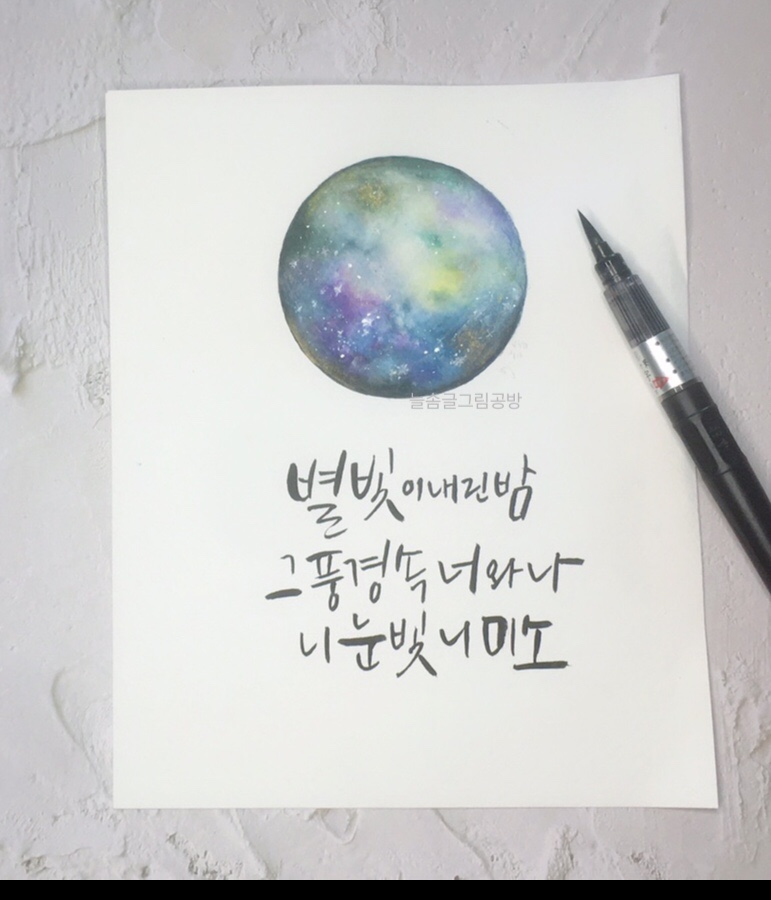 늘솜글그림공방
별빛이내린밤
그풍경속너와나
니눈빛니미소